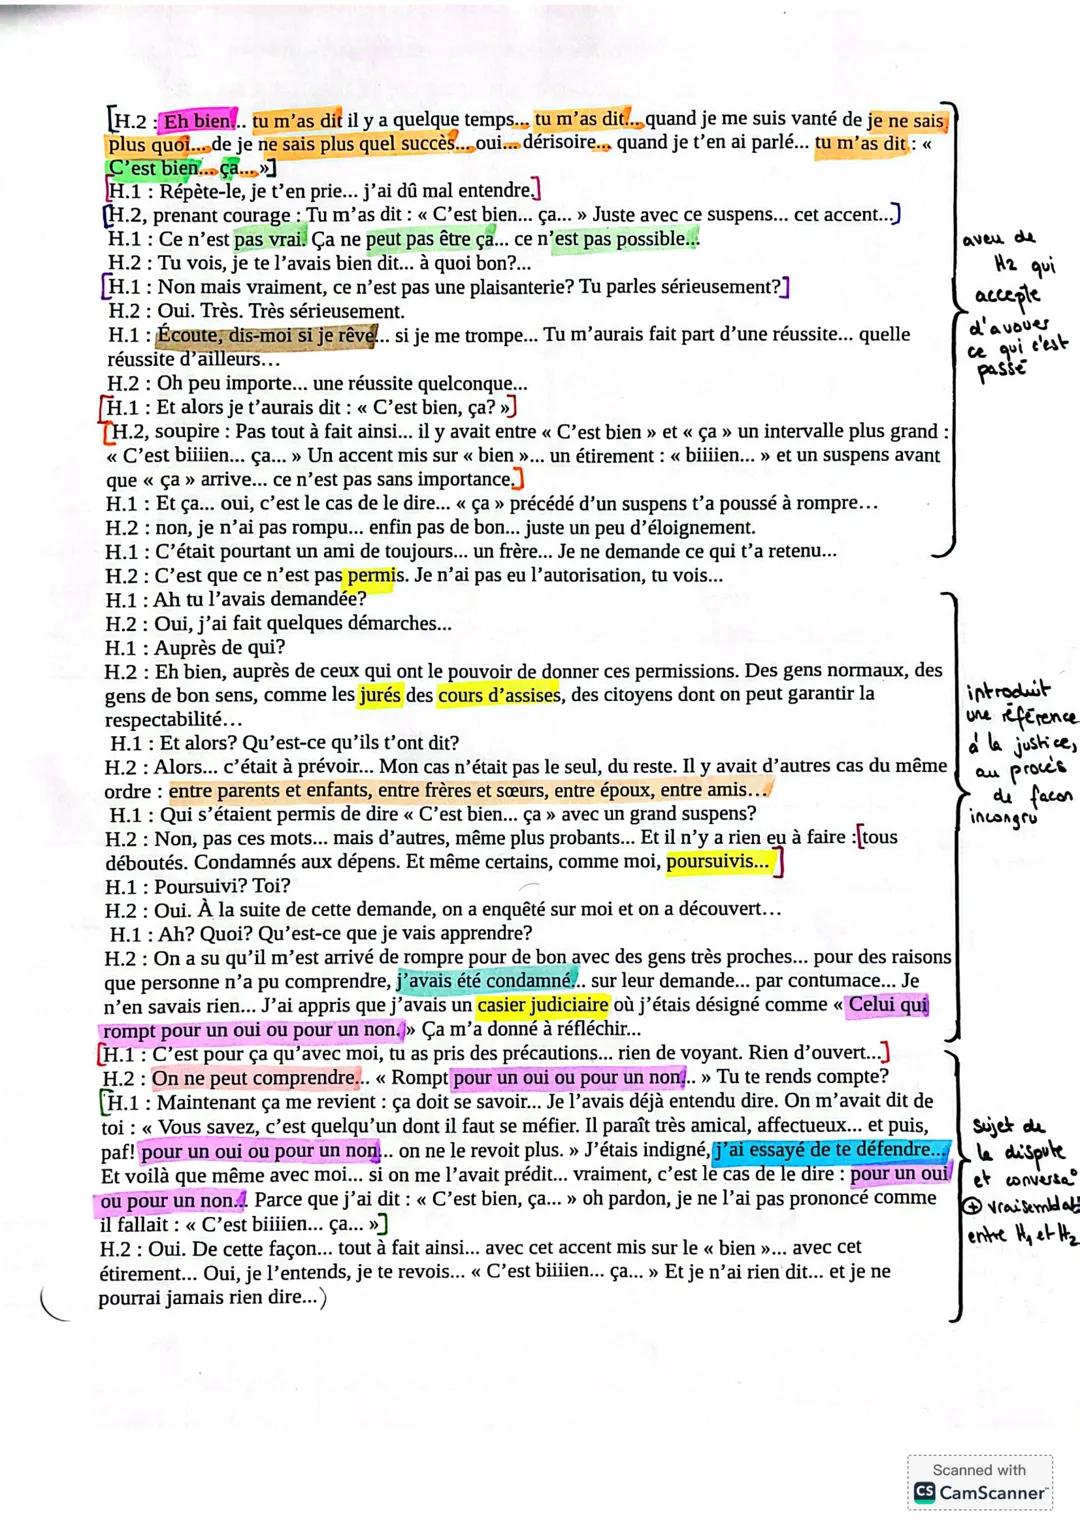 [H.2 : Eh bien... tu m'as dit il y a quelque temps... tu m'as dit... quand je me suis vanté de je ne sais
plus quoi... de je ne sais plus quel succès... oui... dérisoire... quand je t'en ai parlé... tu m'as dit : «
C'est bien... ça... »]
[H.1 : Répète-le, je t'en prie... j'ai dû mal entendre.]
[H.2, prenant courage : Tu m'as dit : « C'est bien... ça... » Juste avec ce suspens... cet accent...]
H.1 : Ce n'est pas vrai. Ça ne peut pas être ça... ce n'est pas possible...
H.2 : Tu vois, je te l'avais bien dit... à quoi bon?...
[H.1 : Non mais vraiment, ce n'est pas une plaisanterie? Tu parles sérieusement?]
H.2 : Oui. Très. Très sérieusement.
H.1 : Écoute, dis-moi si je rêve... si je me trompe... Tu m'aurais fait part d'une réussite... quelle
réussite d'ailleurs...
H.2 : Oh peu importe... une réussite quelconque...
[H.1 : Et alors je t'aurais dit : « C'est bien, ça? »]
[H.2, soupire : Pas tout à fait ainsi... il y avait entre « C'est bien » et « ça » un intervalle plus grand :
« C'est biiiien... ça... » Un accent mis sur « bien »... un étirement : « biiiien... » et un suspens avant
que « ça » arrive... ce n'est pas sans importance.]
H.1 : Et ça... oui, c'est le cas de le dire... « ça » précédé d'un suspens t'a poussé à rompre...
H.2 : non, je n'ai pas rompu... enfin pas de bon... juste un peu d'éloignement.
H.1 : C'était pourtant un ami de toujours... un frère... Je ne demande ce qui t'a retenu...
H.2 : C'est que ce n'est pas permis. Je n'ai pas eu l'autorisation, tu vois...
H.1 : Ah tu l'avais demandée?
H.2 : Oui, j'ai fait quelques démarches...
H.1 : Auprès de qui?
H.2 : Eh bien, auprès de ceux qui ont le pouvoir de donner ces permissions. Des gens normaux, des
gens de bon sens, comme les jurés des cours d'assises, des citoyens dont on peut garantir la
respectabilité...
H.1 : Et alors? Qu'est-ce qu'ils t'ont dit?
H.2 : Alors... c'était à prévoir... Mon cas n'était pas le seul, du reste. Il y avait d'autres cas du même
ordre : entre parents et enfants, entre frères et sœurs, entre époux, entre amis...
H.1 : Qui s'étaient permis de dire « C'est bien... ça » avec un grand suspens?
H.2 : Non, pas ces mots... mais d'autres, même plus probants... Et il n'y a rien eu à faire :[tous
déboutés. Condamnés aux dépens. Et même certains, comme moi, poursuivis...]
H.1 : Poursuivi? Toi?
H.2 : Oui. À la suite de cette demande, on a enquêté sur moi et on a découvert...
H.1 : Ah? Quoi? Qu'est-ce que je vais apprendre?
H.2 : On a su qu'il m'est arrivé de rompre pour de bon avec des gens très proches... pour des raisons
que personne n'a pu comprendre, j'avais été condamné... sur leur demande... par contumace... Je
n'en savais rien... J'ai appris que j'avais un casier judiciaire où j'étais désigné comme « Celui qui
rompt pour un oui ou pour un non. » Ça m'a donné à réfléchir...
[H.1 : C'est pour ça qu'avec moi, tu as pris des précautions... rien de voyant. Rien d'ouvert...]
H.2 : On ne peut comprendre... « Rompt pour un oui ou pour un non... » Tu te rends compte?
[H.1 : Maintenant ça me revient : ça doit se savoir... Je l'avais déjà entendu dire. On m'avait dit de
toi : « Vous savez, c'est quelqu'un dont il faut se méfier. Il paraît très amical, affectueux... et puis,
paf! pour un oui ou pour un non... on ne le revoit plus. » J'étais indigné, j'ai essayé de te défendre...
Et voilà que même avec moi... si on me l'avait prédit... vraiment, c'est le cas de le dire : pour un oui
ou pour un non. Parce que j'ai dit : « C'est bien, ça... » oh pardon, je ne l'ai pas prononcé comme
il fallait : « C'est biiiien... ça... »]
H.2 : Oui. De cette façon... tout à fait ainsi... avec cet accent mis sur le « bien »... avec cet
étirement... Oui, je l'entends, je te revois... « C'est biiiien... ça... » Et je n'ai rien dit... et je ne
pourrai jamais rien dire...)
aveu de
H2 qui
accepte
d'avouer
ce qui c'est
passé
introduit
une référence
à la justice,
au procès
de facon
incongru
Sujet de
la dispute
et conversa°
⊕ vraisemblab
entre H1 et H2
Scanned with
CS CamScanner